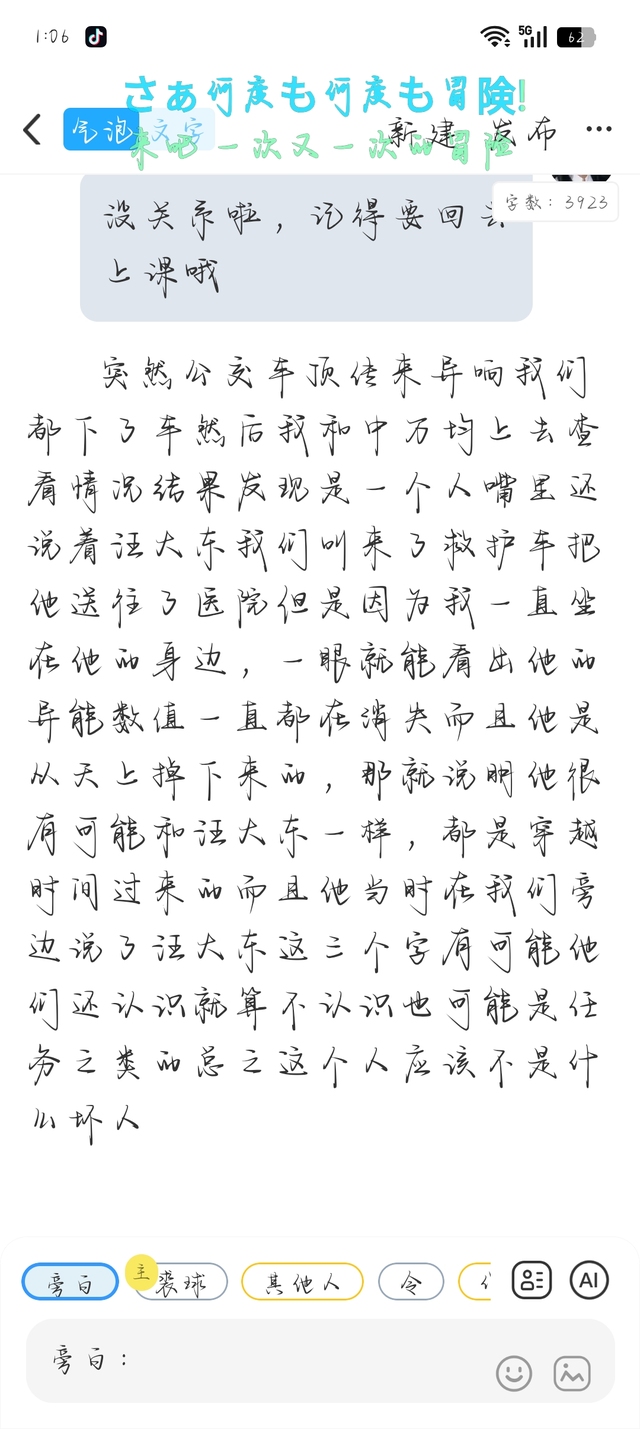 1:06
5G
62
さあ何度も何度も冒険!
来吧一次又一次的冒险
气泡 文字
新建 发布
字数：3923
没关系啦，记得要回去
上课哦
突然公交车顶传来异响我们
都下了车然后我和中万均上去查
看情况结果发现是一个人嘴里还
说着汪大东我们叫来了救护车把
他送往了医院但是因为我一直坐
在他的身边，一眼就能看出他的
异能数值一直都在消失而且他是
从天上掉下来的，那就说明他很
有可能和汪大东一样，都是穿越
时间过来的而且他当时在我们旁
边说了汪大东这三个字有可能他
们还认识就算不认识也可能是任
务之类的总之这个人应该不是什
么坏人
旁白 主 裴球 其他人 令
AI
旁白：